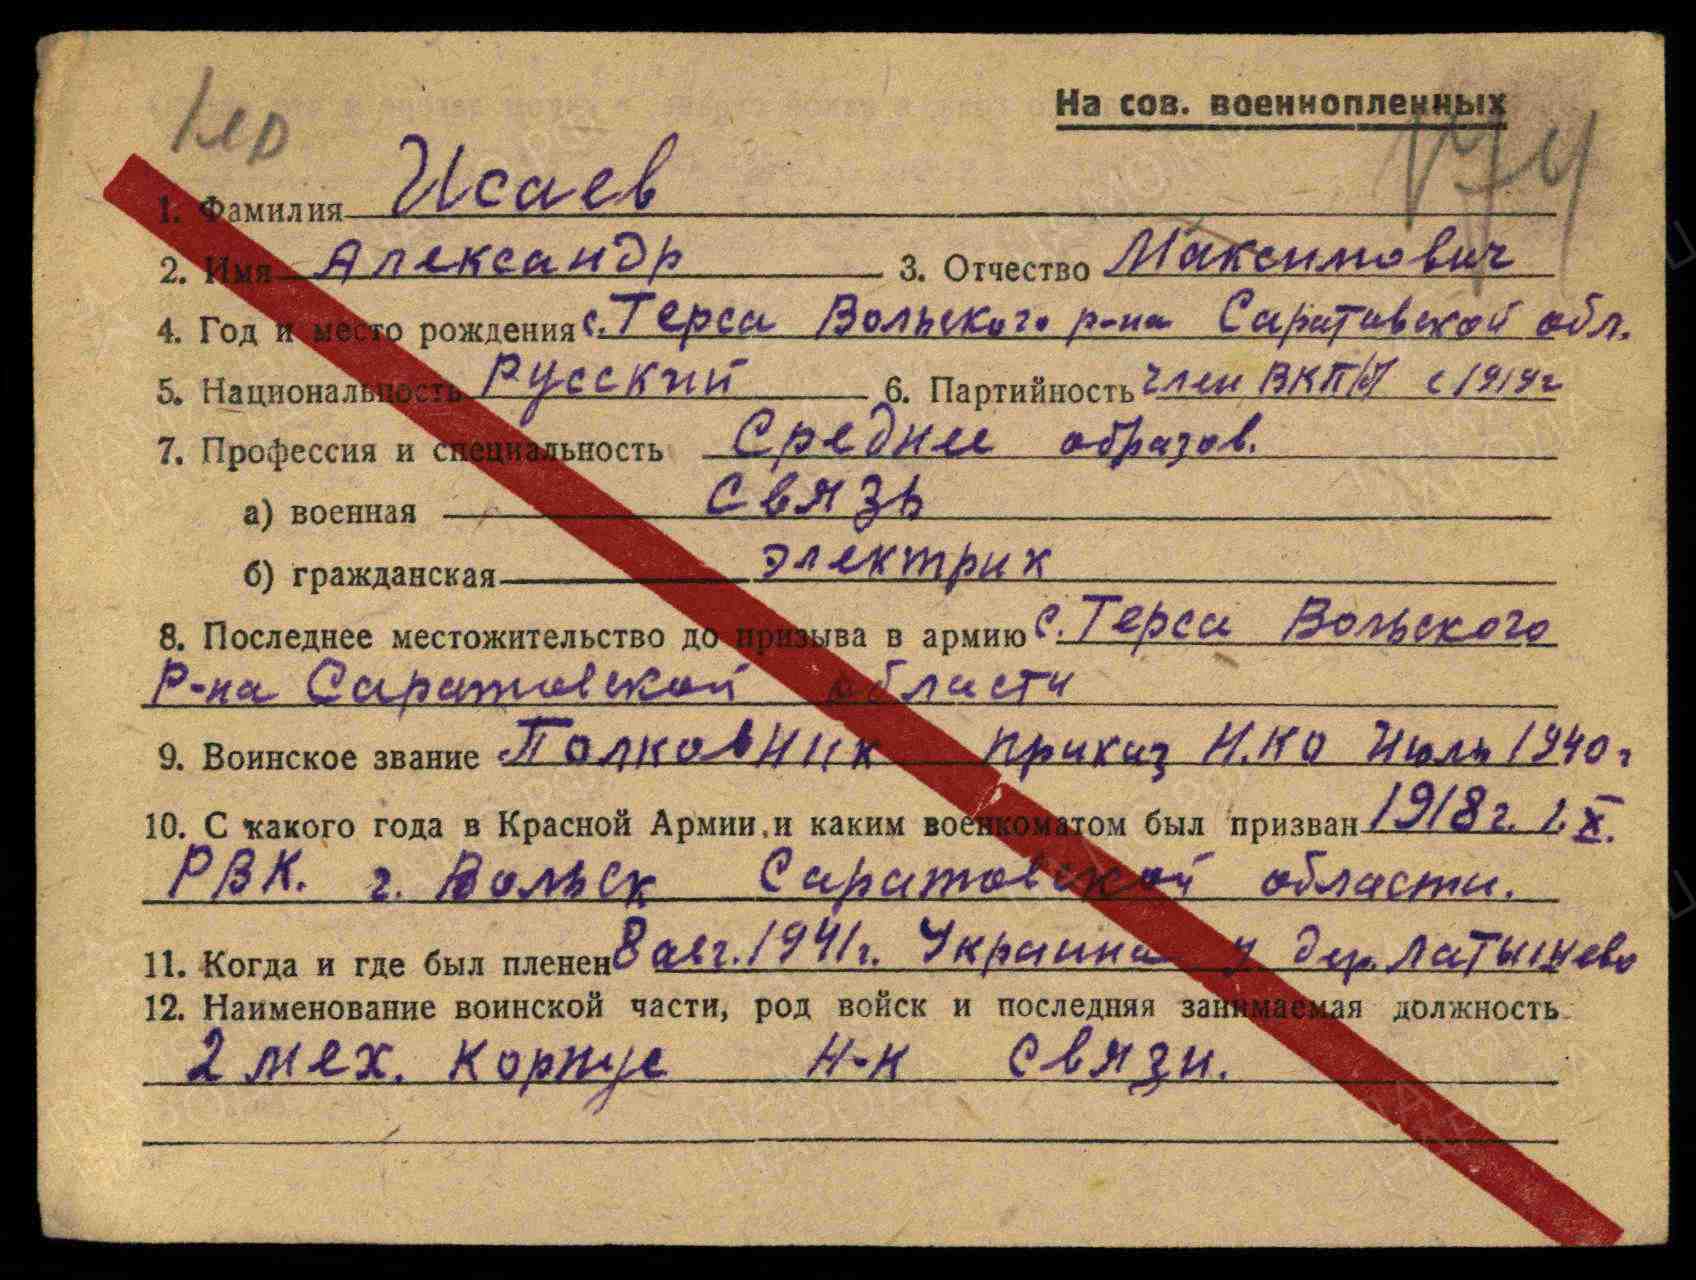 На сов. военнопленных
1. Фамилия Исаев
2. Имя Александр 3. Отчество Максимович
4. Год и место рождения с. Терса Вольского р-на Саратовской обл.
5. Национальность Русский 6. Партийность член ВКП/б/ с 1919г
7. Профессия и специальность Среднее образов.
а) военная связь
б) гражданская электрик
8. Последнее местожительство до призыва в армию с. Терса Вольского
Р-на Саратовской области
9. Воинское звание Полковник приказ Н.КО Июль 1940 г
10. С какого года в Красной Армии и каким военкоматом был призван 1918 г. 1. X.
РВК. г. Вольск Саратовской области.
11. Когда и где был пленен 8 авг. 1941г. Украина у дер. Латышево
12. Наименование воинской части, род войск и последняя занимаемая должность
2 мех. корпус Н-к связи.